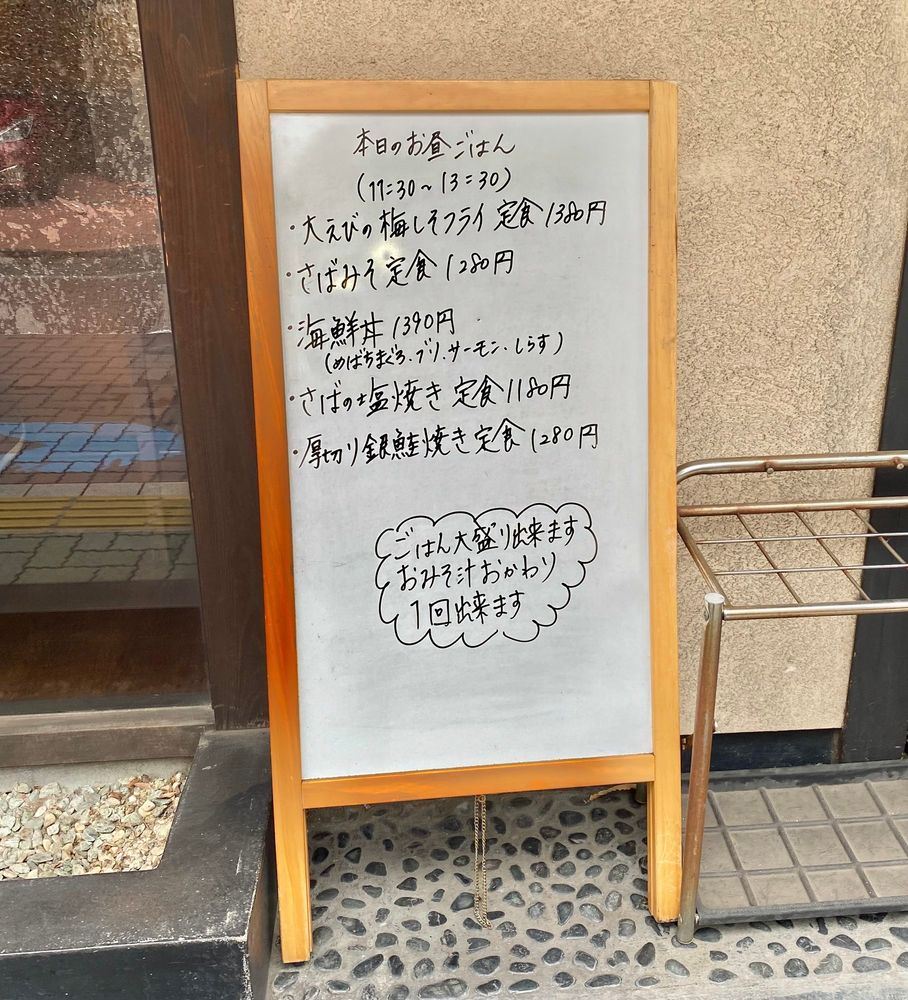 本日のお昼ごはん
(11:30~13:30)
・大えびの梅しそフライ定食1380円
・さばみそ定食1280円
・海鮮丼1390円
(めばちまぐろ.ブリ.サーモン.しらす)
・さばの塩焼き定食1180円
・厚切り銀鮭焼き定食1280円
ごはん大盛り出来ます
おみそ汁おかわり
1回出来ます